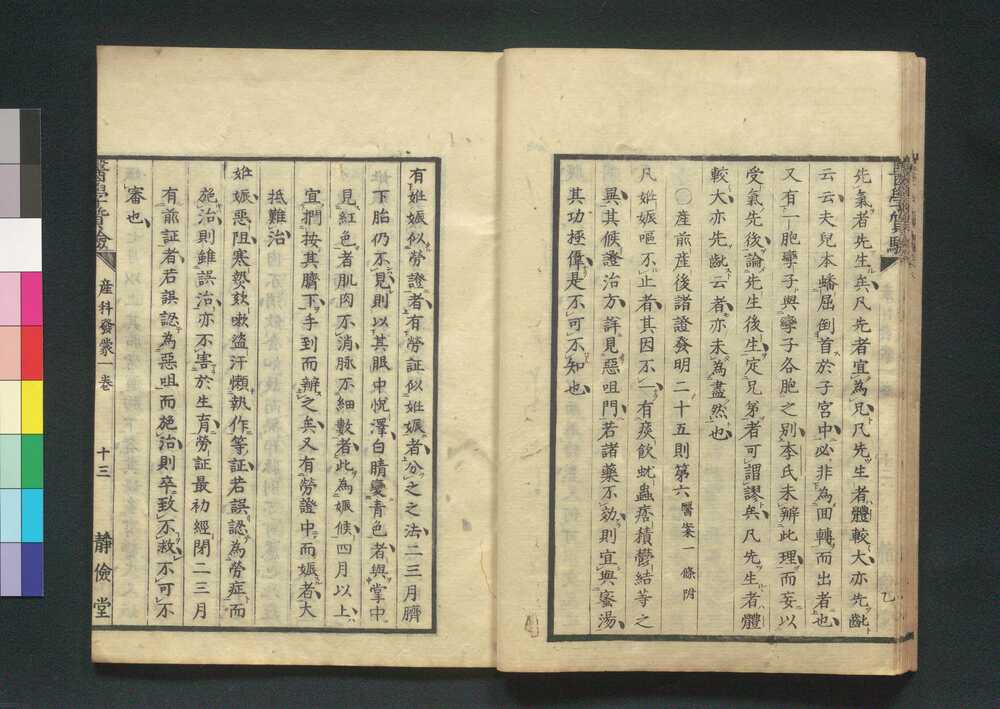 先氣者先生矣凡先者宜為兄凡先生者體較大亦先齔
云云夫兒本蟠屈倒首於子宮中必非為回轉而出者也
又有一胞孿子與孿子各胞之別李氏未辨此理而妄以
受氣先後論先生後生定兄弟者可謂謬矣凡先生者體
較大亦先齔云者亦未為盡然也
〇產前產後諸證發明二十五則第六 醫案一條附
凡姙娠嘔不止者其因不一有痰飲蚘蟲痞積鬱結等之
異其候證治方詳見惡咀門若諸藥不効則宜與蜜湯
其功極偉是不可不知也
有姙娠似勞證者有勞証似姙娠者分之之法二三月臍
下胎仍不見則以其眼中悅澤白睛變青色者與掌中
見紅色者肌肉不消脉不細數者此為娠候四月以上
宜捫按其臍下手到而辨之矣又有勞證中而娠者大
抵難治
姙娠惡阻寒熱欬嗽盜汗懶執作等証若誤認為勞症而
施治則雖誤治亦不害於生育勞証最初經閉二三月
有前証者若誤認為惡咀而施治則卒致不救不可不
審也
醫學
產科發蒙一卷
十三
靜儉堂